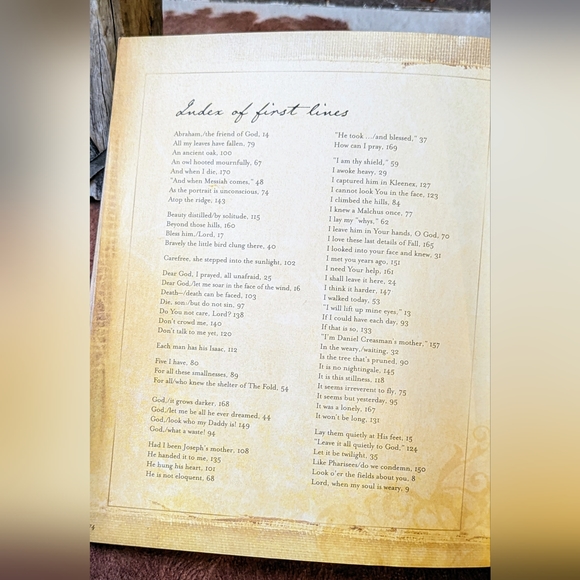 Index of first lines
Abraham,/the friend of God, 14
All my leaves have fallen, 79
An ancient oak, 100
An owl hooted mournfully, 67
And when I die, 170
"And when Messiah comes," 48
As the portrait is unconscious, 74
Atop the ridge, 143
Beauty distilled/by solitude, 115
Beyond those hills, 160
Bless him,/Lord, 17
Bravely the little bird clung there, 40
Carefree, she stepped into the sunlight, 102
Dear God, I prayed, all unafraid, 25
Dear God,/let me soar in the face of the wind, 16
Death—/death can be faced, 103
Die, son/but do not sin, 97
Do You not care, Lord? 138
Don't crowd me, 140
Don't talk to me yet, 120
Each man has his Isaac, 112
Five I have, 80
For all these smallnesses, 89
For all/who knew the shelter of The Fold, 54
God,/it grows darker, 168
God,/let me be all he ever dreamed, 44
God,/look who my Daddy is! 149
God,/what a waste! 94
Had I been Joseph's mother, 108
He handed it to me, 135
He hung his heart, 101
He is not eloquent, 68
"He took .../and blessed," 37
How can I pray, 169
"I am thy shield," 59
I awoke heavy, 29
I captured him in Kleenex, 127
I cannot look You in the face, 123
I climbed the hills, 84
I knew a Malchus once, 77
I lay my "whys," 62
I leave him in Your hands, O God, 70
I love these last details of Fall, 165
I looked into your face and knew, 31
I met you years ago, 151
I need Your help, 161
I shall leave it here, 24
I think it harder, 147
I walked today, 53
"I will lift up mine eyes," 13
If I could have each day, 93
If that is so, 133
"I'm Daniel Creasman's mother," 157
In the weary,/waiting, 32
Is the tree that's pruned, 90
It is no nightingale, 145
It is this stillness, 118
It seems irreverent to fly, 75
It seems but yesterday, 95
It was a lonely, 167
It won't be long, 131
Lay them quietly at His feet, 15
"Leave it all quietly to God," 124
Let it be twilight, 35
Like Pharisees/do we condemn, 150
Look o'er the fields about you, 8
Lord, when my soul is weary, 9